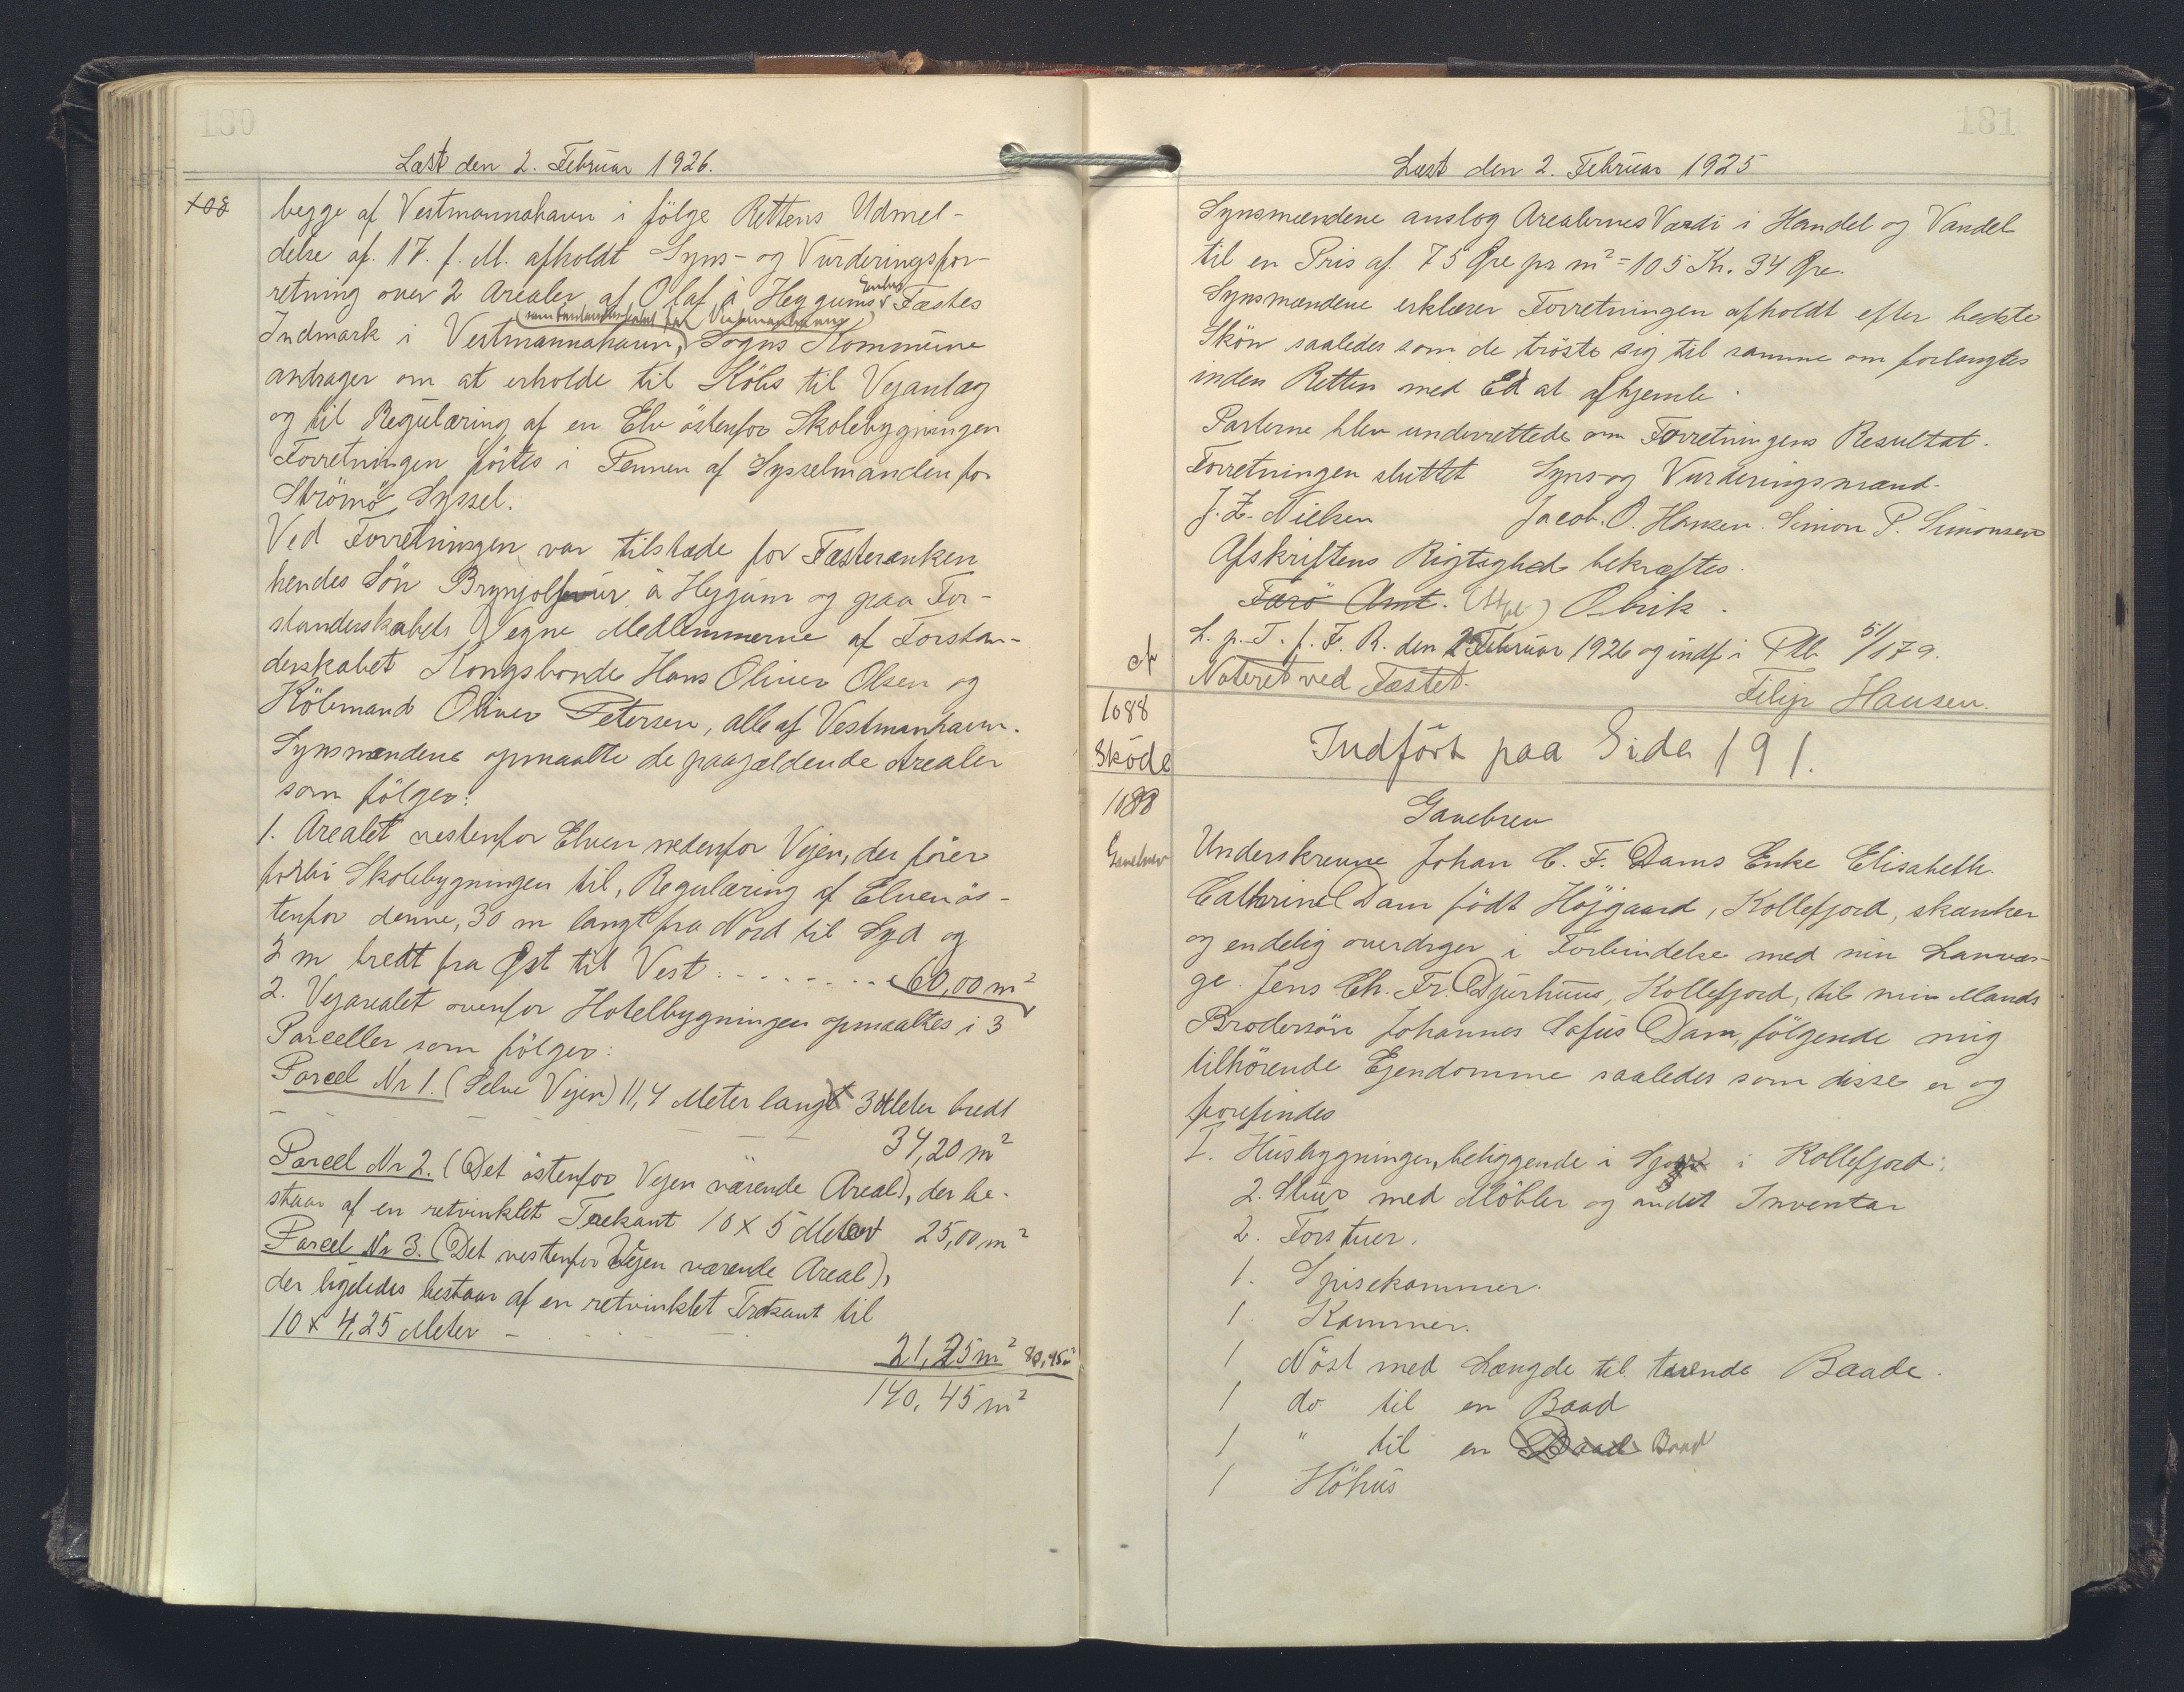 180
Læst den 2. Februar 1926.
108
begge af Vestmannahavn i følge Rettens Udmel-
delse af. 17. f. M. afholdt Syns- og Vurderingsfor-
retning over 2 Arealer af Olaf á Heygums Enkes Fæstes
Indmark i Vestmannahavn, Sogns Kommune
andrager om at erholde til Köbs til Vejanlæg
og til Regulæring af en Elv östenfor Skolebygningen
Forretningen förtes i Pennen af Sysselmanden for
Strömö Syssel.
Ved Forretningen var tilstæde for Fæsterenken
hendes Sön Brynjolfur á Heygum og paa For-
standerskabets Vegne Medlemmerne af Forstan-
derskabet Kongsbonde Hans Oliver Olsen og
Köbmand Oliver Petersen, alle af Vestmanhavn.
Synsmændene opmaalte de paagældende Arealer
som fölger:
1. Arealet vestenfor Elven nedenfor Vejen, der förer
forbi Skolebygningen til, Regulæring af Elven ös-
tenfor denne, 30 m langt fra Nord til Syd og
2 m bredt fra Øst til Vest . . . . . . . 60,00 m²
2. Vejarealet ovenfor Hotelbygningen opmaaltes i 3
Parceller som fölger:
Parcel Nr 1. (Selve Vejen) 11,4 Meter langt 3 Meter bredt
34,20 m²
Parcel Nr 2. (Det östenfor Vejen værende Areal), der be-
staar af en retvinklet Trekant 10 x 5 Meter 25,00 m²
Parcel Nr 3. (Det vestenfor Vejen værende Areal),
der ligeledes bestaar af en retvinklet Trekant til
10 x 4,25 Meter - 21,25 m² 80,45 m²
140,45 m²
181
Læst den 2. Februar 1925
Synsmændene anslog Arealernes Værdi i Handel og Vandel
til en Pris af 75 Øre pr m² = 105 Kr. 34 Øre.
Synsmændene erklærer Forretningen afholdt efter bedste
Skön saaledes som de tröste sig til samme om forlangtes
inden Retten med Ed at afhjemle.
Parterne blev underrettede om Forretningens Resultat.
Forretningen sluttet Syns- og Vurderingsmænd.
J. Z. Nielsen Jacob. O. Hansen. Simon P. Simonsen
Afskriftens Rigtighed bekræftes.
Færö Amt. Olrik.
L. p. T. f. F. R. den 2 Februar 1926 og indf i Ptb 51/179.
Noteret ved Fæstet.
Filip Hansen.
1088
Sköde
Indfört paa Side 191.
1088
Gavebrev
Gavebrev
Underskrevne Johan C. F. Dams Enke Elisabeth
Cathrine Dam födt Höjgaard, Kollefjord, skænker
og endelig overdrager i Forbindelse med min Lavvær-
ge. Jens Ch. Fr. Djurhuus, Kollefjord, til min Mands
Brodersön Johannes Sofus Dam, fölgende mig
tilhörende Ejendomme saaledes som disse er og
forefindes
I. Husbygningen, beliggende i i Kollefjord:
2. Stuer med Möbler og andet Inventar
2. Forstuer.
1. Spisekammer.
1. Kammer.
1 Nöst med Længde til tvende Baade.
1 do til en Baad
1 " til en Baad Baad
1 Höhus